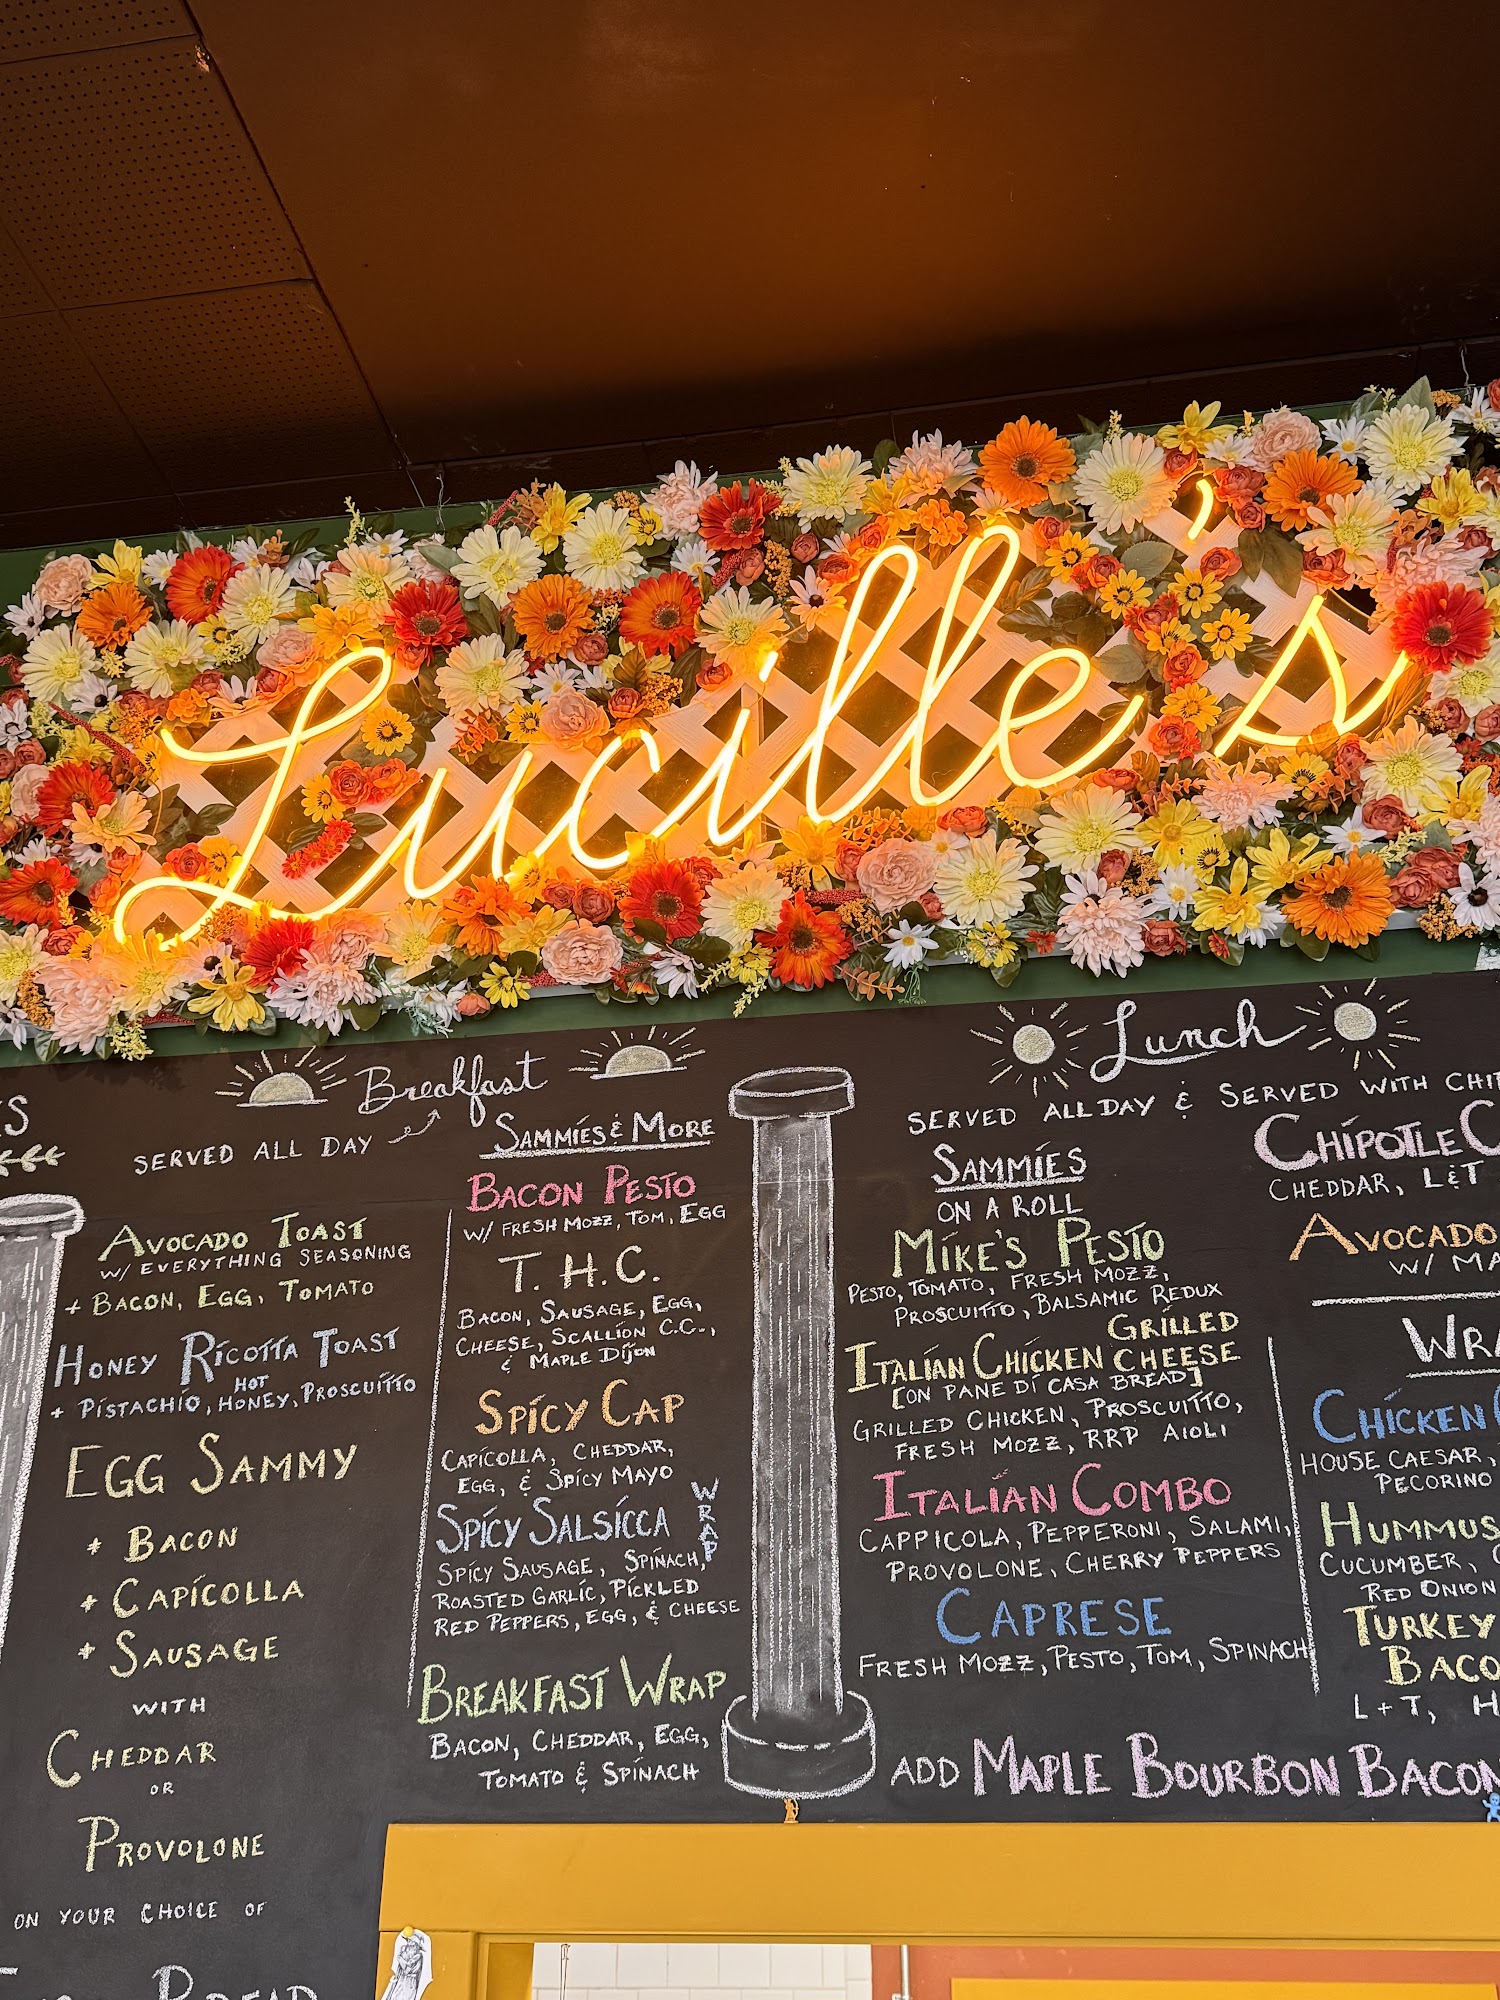 Lucille's
Breakfast
SERVED ALL DAY
AVOCADO TOAST
W/ EVERYTHING SEASONING
+ BACON, EGG, TOMATO
HONEY RICOTTA TOAST
+ PISTACHIO, HOT HONEY, PROSCUITTO
EGG SAMMY
+ BACON
+ CAPICOLLA
+ SAUSAGE
WITH
CHEDDAR
OR
PROVOLONE
ON YOUR CHOICE OF
BREAD
SAMMIES & MORE
BACON PESTO
W/ FRESH MOZZ, TOM, EGG
T.H.C.
BACON, SAUSAGE, EGG,
CHEESE, SCALLION C.C.,
& MAPLE DIJON
SPICY CAP
CAPICOLLA, CHEDDAR,
EGG, & SPICY MAYO
SPICY SALSICCA WRAP
SPICY SAUSAGE, SPINACH,
ROASTED GARLIC, PICKLED
RED PEPPERS, EGG, & CHEESE
BREAKFAST WRAP
BACON, CHEDDAR, EGG,
TOMATO & SPINACH
Lunch
SERVED ALL DAY & SERVED WITH
SAMMIES
ON A ROLL
MIKE'S PESTO
PESTO, TOMATO, FRESH MOZZ,
PROSCUITTO, BALSAMIC REDUX
ITALIAN CHICKEN GRILLED CHEESE
[ON PANE DI CASA BREAD]
GRILLED CHICKEN, PROSCUITTO,
FRESH MOZZ, RRP AIOLI
ITALIAN COMBO
CAPPICOLA, PEPPERONI, SALAMI,
PROVOLONE, CHERRY PEPPERS
CAPRESE
FRESH MOZZ, PESTO, TOM, SPINACH
CHIPOTLE C
CHEDDAR, L&T
AVOCADO
W/ MA
WRA
CHICKEN
HOUSE CAESAR,
PECORINO
HUMMUS
CUCUMBER,
RED ONION
TURKEY
BACO
L+T, H
ADD MAPLE BOURBON BACON